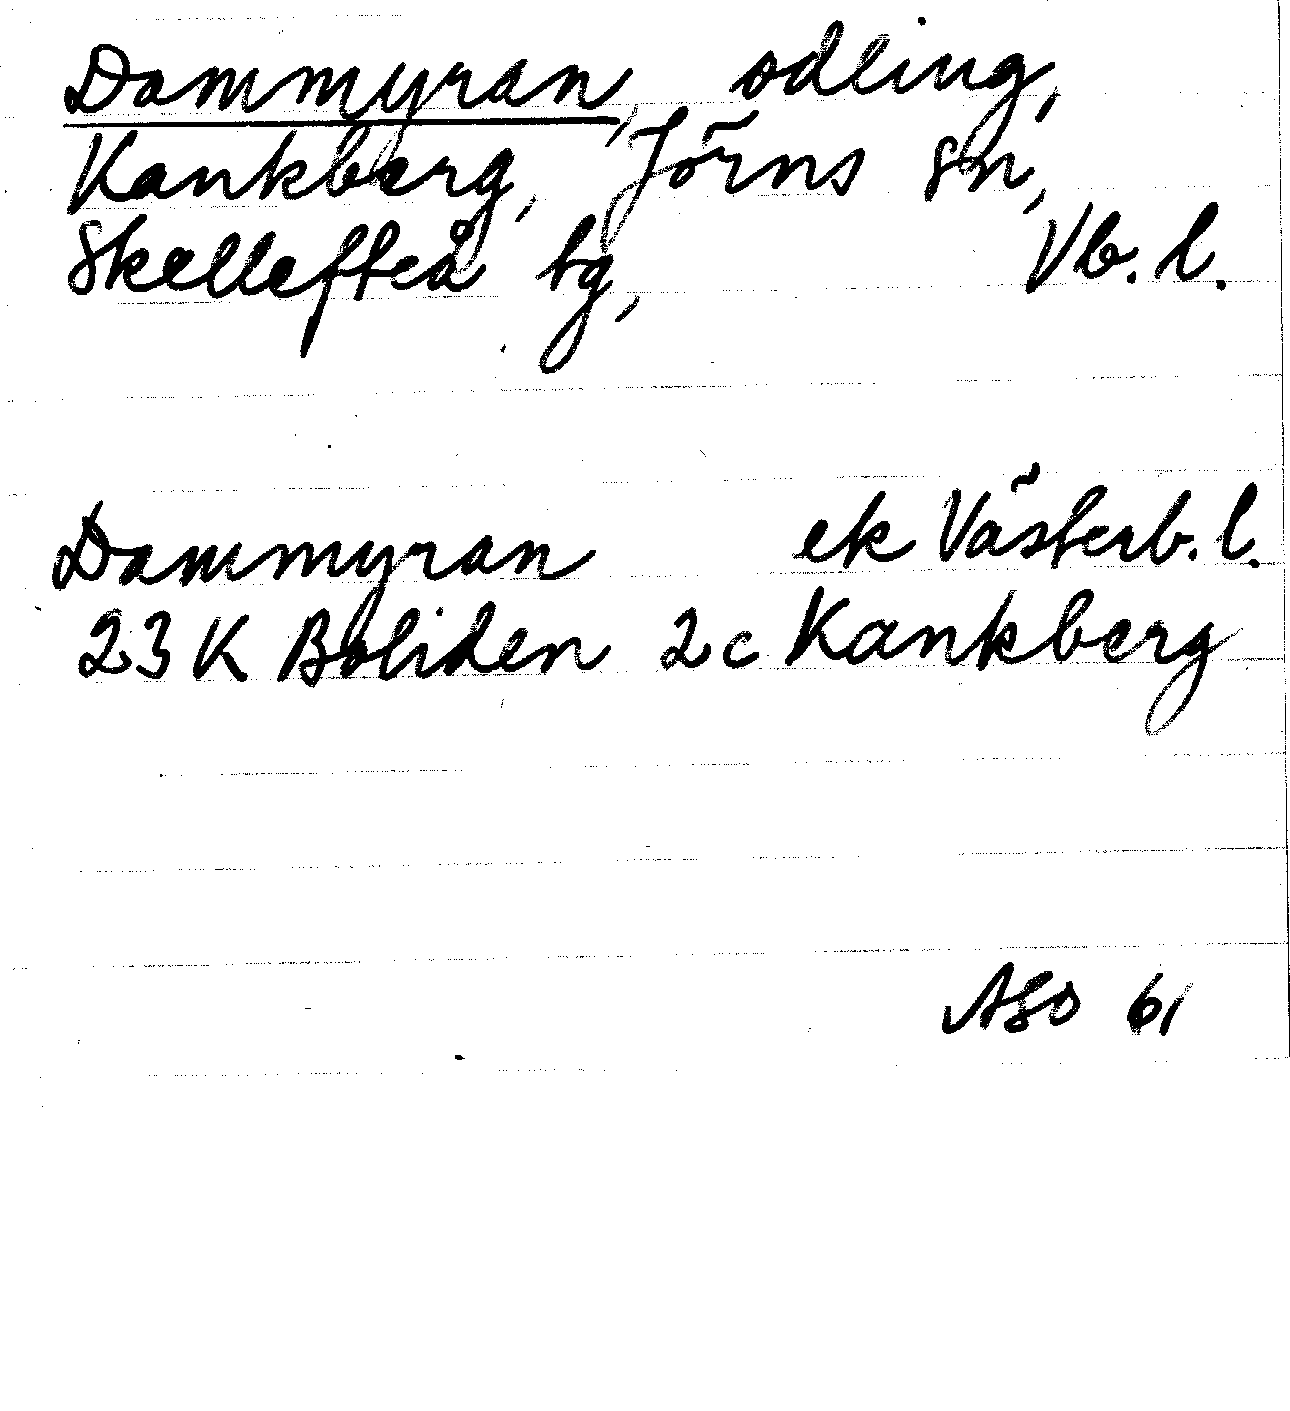 Dammyran, odling,
Kankberg, Jörns sn,
Skellefteå tg, Vb. l.
Dammyran ek Västerb. l.
23 K Boliden 2 c Kankberg
ASO 61